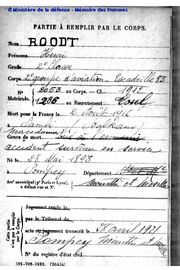 © Ministère de la défense - Mémoire des Hommes
PARTIE À REMPLIR PAR LE CORPS.
Nom ROODT
Prénoms Henri
Grade 2e Classe
Corps 2e groupe d'aviation Escadrille
N° 2053 au Corps. — Cl. 1912
Matricule. 1286 au Recrutement Toul
Mort pour la France le 2 Août 1916
à
Genre de mort
accident survenu en service
Né le 28 Mai 1893
à Pompey Département Meurthe et Moselle
Arr' municipal (p' Paris et Lyon),
à défaut rue et N°.
Jugement rendu le
par le Tribunal de
acte ou jugement transcrit le 8 avril 1921
à Pompey Meurthe et Moselle
N° du registre d'état civil